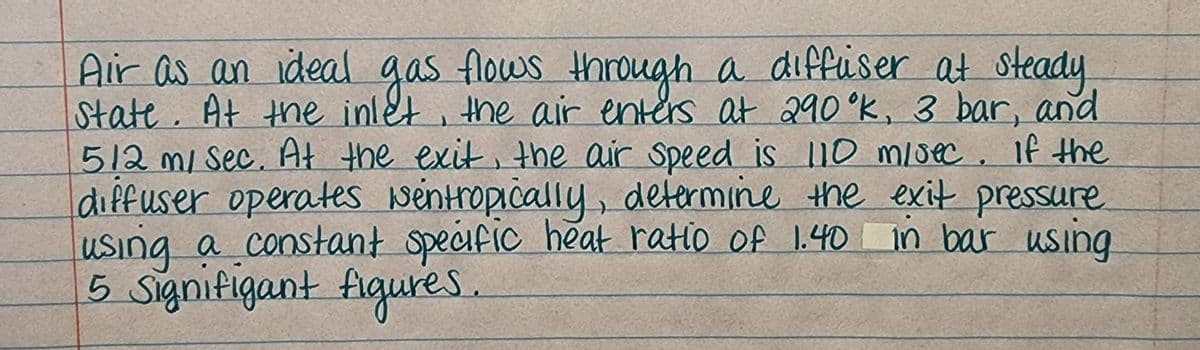 Air as an ideal gas flows through a diffuser at steady
state. At the inlet, the air enters at 290 °K, 3 bar, and
512 m/sec. At the exit, the air speed is 110 m/sec. If the
diffuser operates isentropically, determine the exit pressure
using a constant specific heat ratio of 1.40 in bar using
5 signifigant figures.